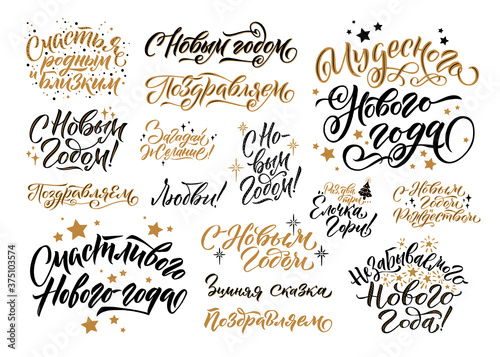 Счастья
родным
и
близким
С Новым годом
Поздравляем
Чудесного
Нового
года!
С Новым
Годом!
Загадай
Желание!
С Но-
вым
Годом!
Поздравляем
Любви!
Раз, два,
три!
Ёлочка
Гори!
С Новым
Годом и
Рождеством
Счастливого
Нового года!
С Новым
Годом
Зимняя сказка
Поздравляем
Незабываемого
Нового
Года!
Adobe Stock | #375103574